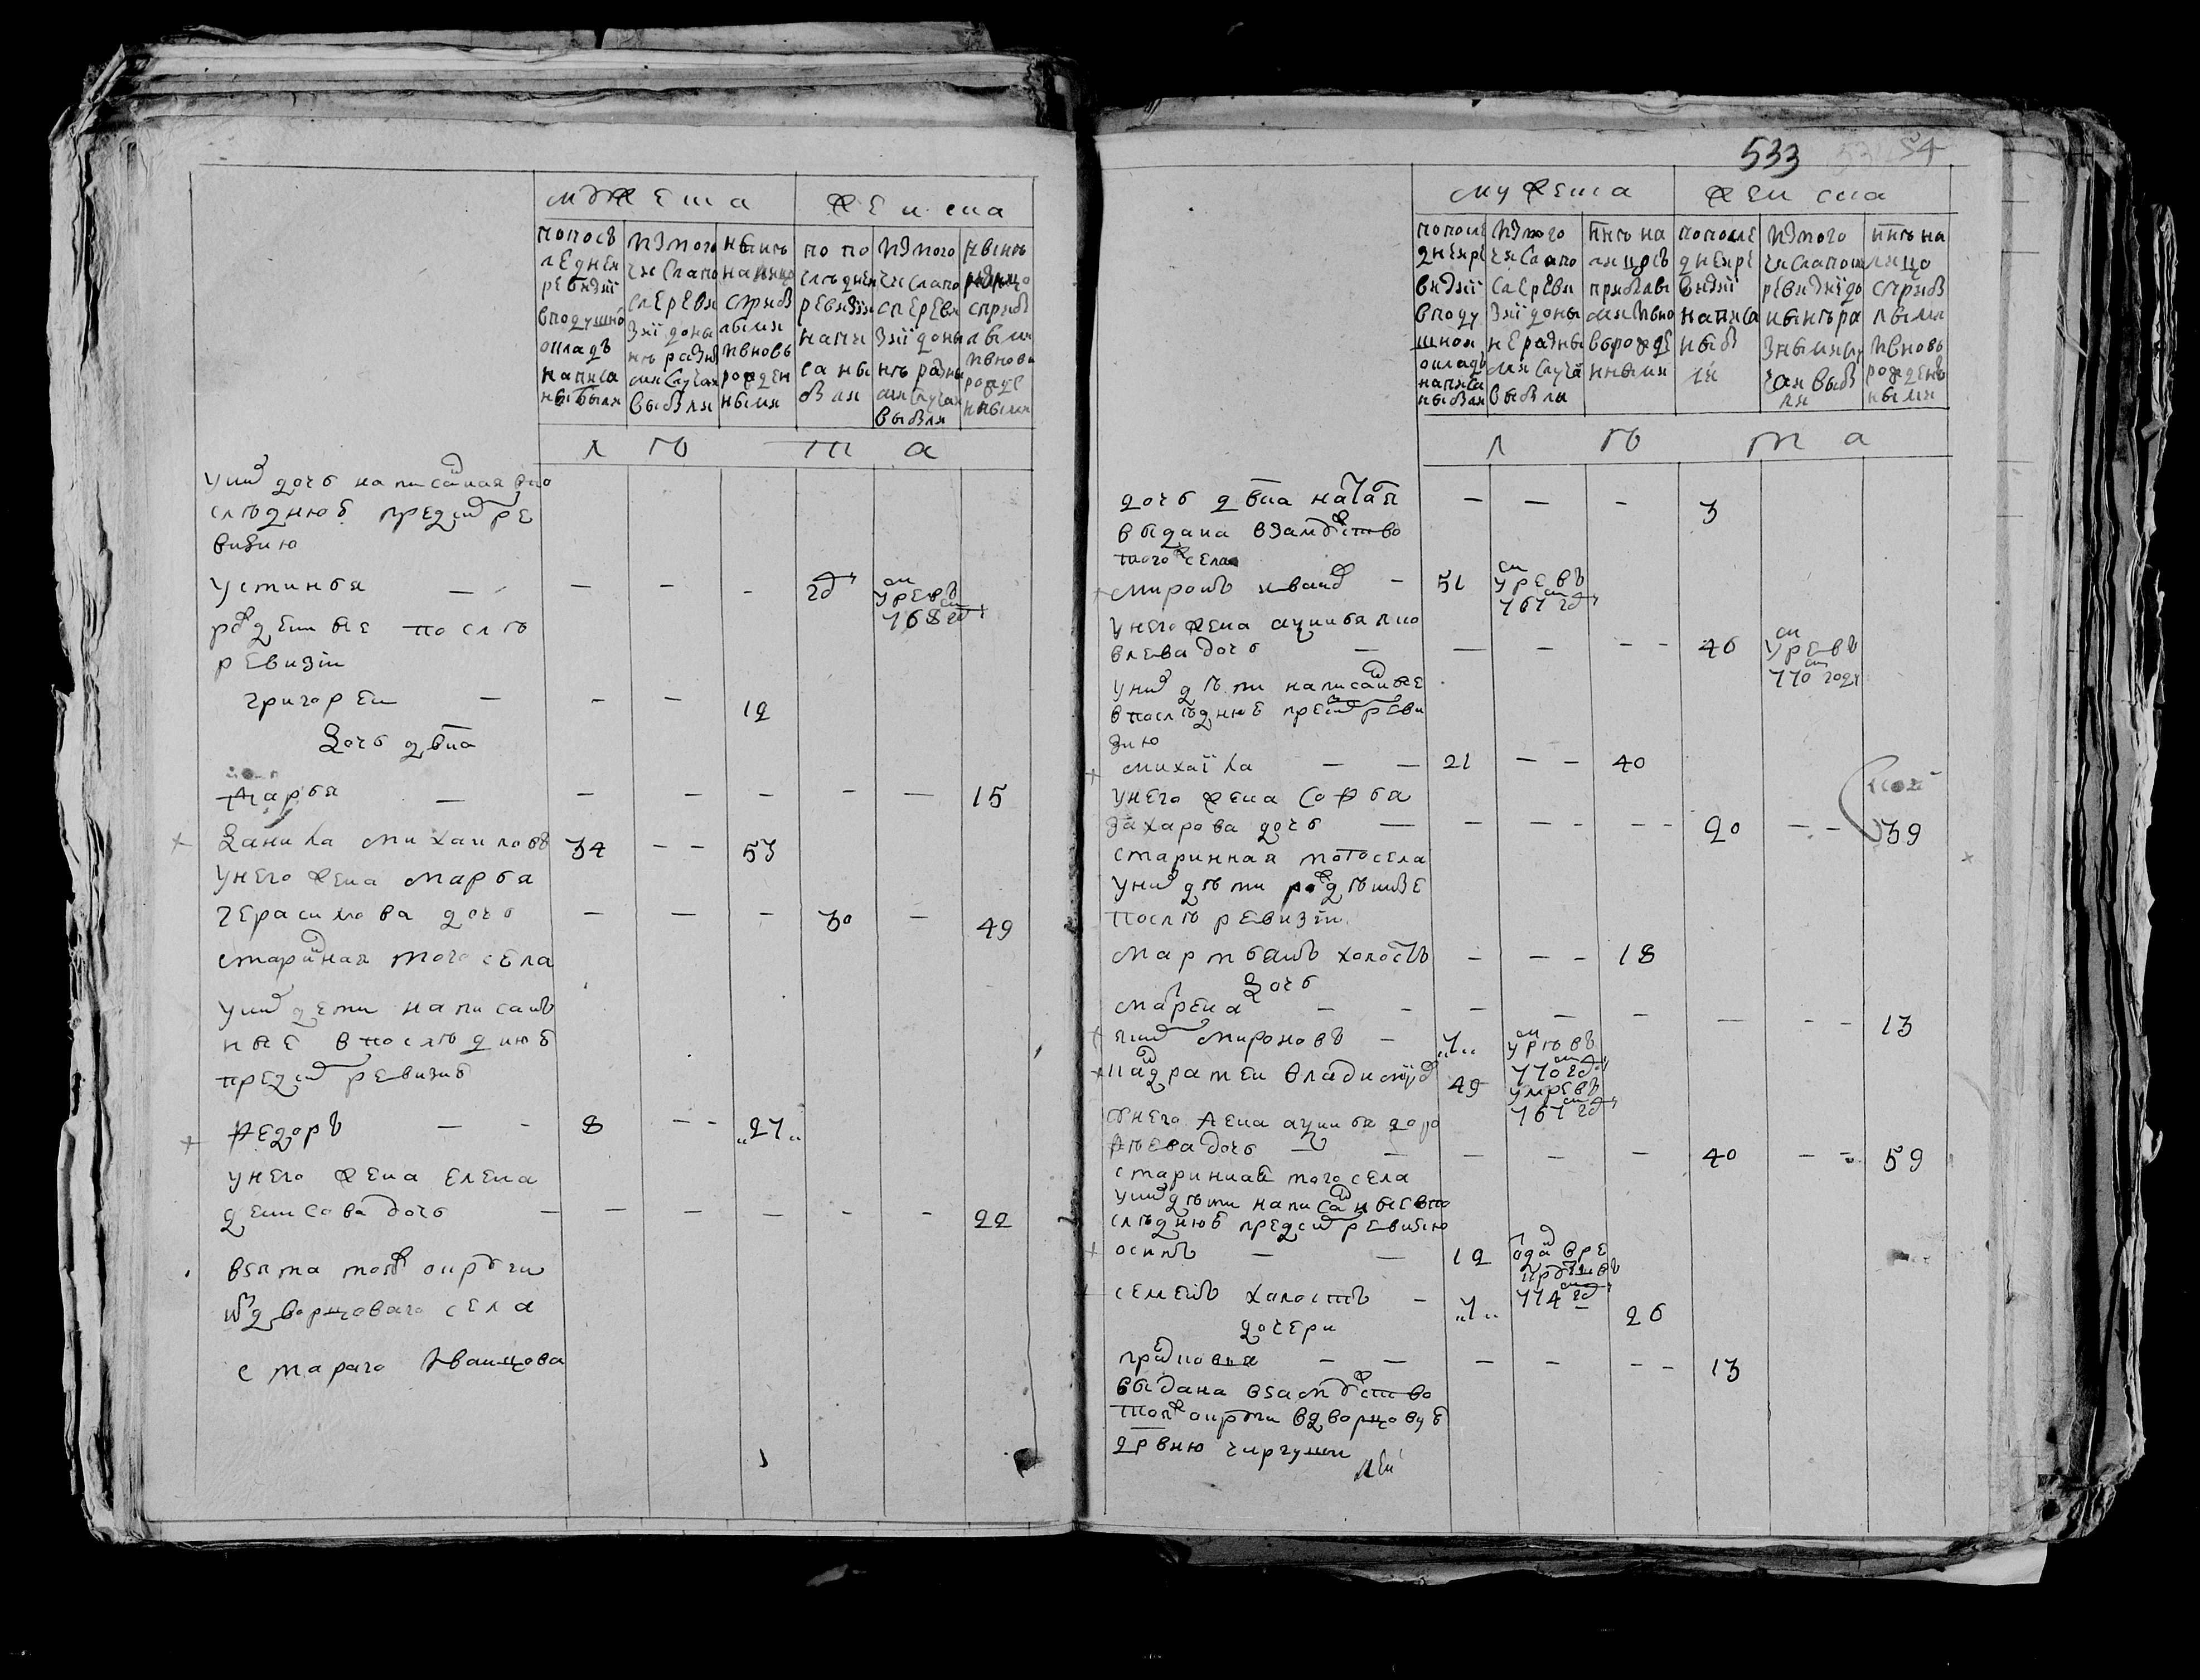 мужеска
женска
попосъ
леднеи
ревизіи
вподушнő
окладъ
написа
ны были
изтого
числапо
слеревн
зіи доны
нѣ разн
ми случаи
выбли
нынѣ
налицо
сприб
лыми
ивновь
рожден
ными
по по
слѣднеи
ревизіи
напи
са ны
были
изтого
числапо
слеревн
зіи доны
нѣ разны
ми случаи
выбли
нынѣ
налицо
сприб
лыми
ивновь
рожде
нными
л ѣ т а
уних дочь написаная впо
слѣднюю пред сим ре
визию
устинья — — — — 2д умре въ 768 гд
рожденные послѣ
ревизіи
григореи — — — 12
дочь двка
Марья — — — — — — 15
данила михаиловъ 34 — — 53
унего жена марья
герасимова дочь — — — 30 — 49
стариная того села
уних дети написан
ные впослѣднюю
пред сим ревизию
Федоръ — — 8 — — 27
унего жена елена
денисова дочь — — — — — — 22
взята тои ж округи
из дворцоваго села
стараго Иванцова
533
54
мужеска
женска
попосле
днеи ре
визіи
вподу
шнои
окладъ
написа
ны были
изтого
числапо
слеревн
зіи доны
не разны
ми случа
выбли
ннѣ на
лицо съ
прибылы
ми ивно
вьрожде
нными
попосле
днеи ре
визіи
написа
ны бы
ли
изтого
числапос
ревизіи до
нынѣ ра
зными слу
чаи выбы
ли
ннѣ на
лицо
сприб
лыми
ивновь
рожден
ными
л ѣ т а
дочь двка наталья — — — 3
выдана взамужство
того ж села
миронъ иванов — 51 умре въ 767 гд
унего жена аксинья пио
влева дочь — — — — — 46 умре въ 770 году
уних дѣти написаные
впослѣднюю пред сим реви
зию
михаіла — — 21 — — 40
унего жена софья
захарова дочь — — — — — — 20 — — 39
старинная тогосела
уних дѣти родѣшиѣ
послѣ ревизіи
мартьянъ холостъ — — — 18
дочь
марина — — — — — — — — 13
яким мироновъ — 7 умрѣ въ 770 гд
кадратеи владимиров 49 умре въ 767 гд
унего жена аксинья доро
феева дочь — — — — — 40 — — 59
стариннаѣ того села
уних дѣти написаны евпо
слѣднюю пред сим ревизию
осипъ — — 12 одан вре круты въ 774 гд
семенъ холостъ — 7 26
дочери
прасковья — — — — — — 13
выдана взамужство
тои ж округи вдворцовую
дрвню чиргуши